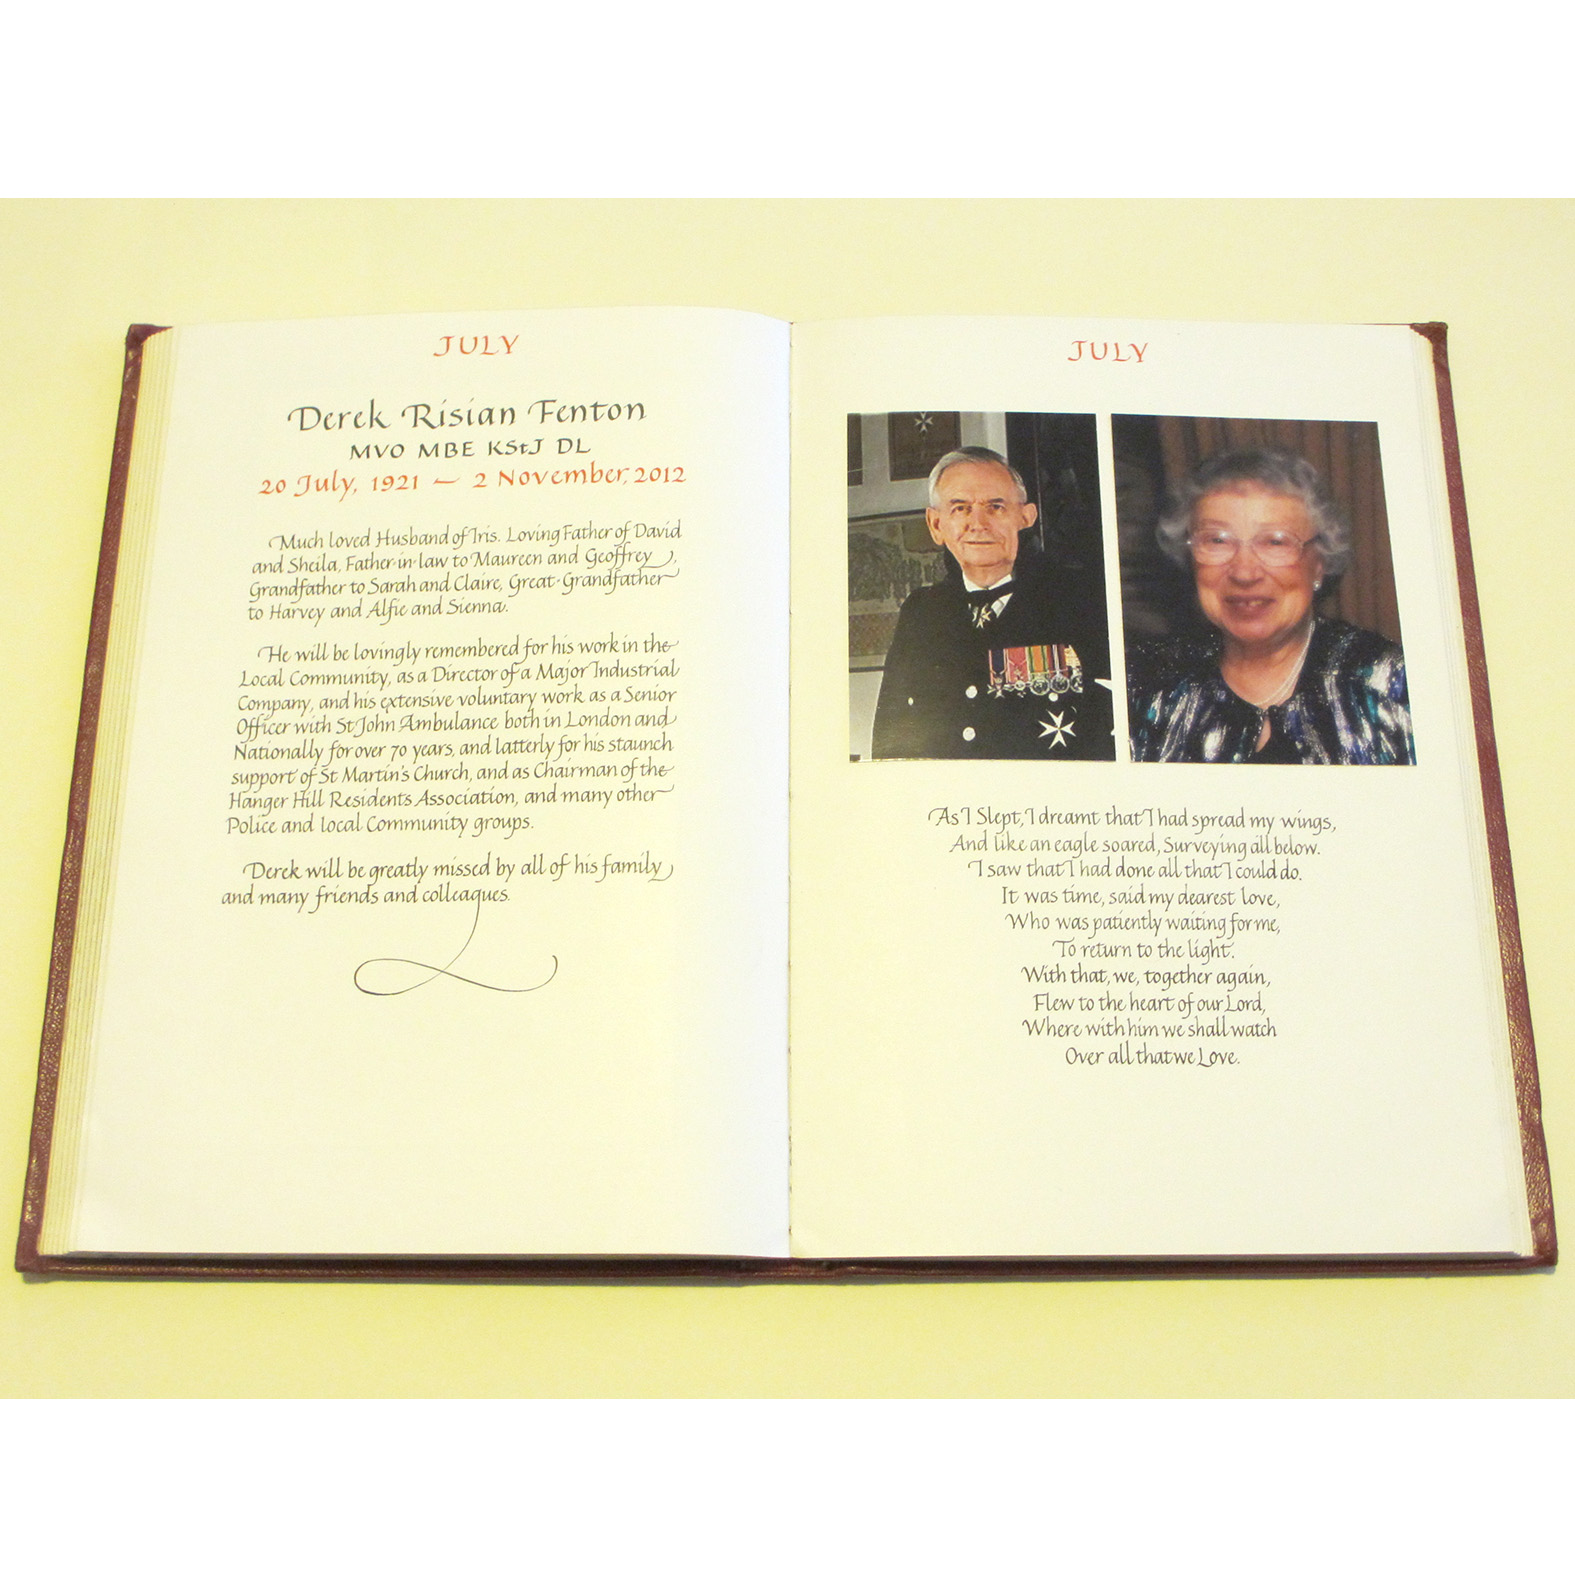 JULY
Derek Risian Fenton
MVO MBE KStJ DL
20 July, 1921 — 2 November, 2012
Much loved Husband of Iris. Loving Father of David
and Sheila, Father-in-law to Maureen and Geoffrey,
Grandfather to Sarah and Claire, Great-Grandfather
to Harvey and Alfie and Sienna.
He will be lovingly remembered for his work in the
Local Community, as a Director of a Major Industrial
Company, and his extensive voluntary work as a Senior
Officer with St John Ambulance both in London and
Nationally for over 70 years, and latterly for his staunch
support of St Martin's Church, and as Chairman of the
Hanger Hill Residents Association, and many other
Police and local Community groups.
Derek will be greatly missed by all of his family
and many friends and colleagues.
JULY
As I Slept, I dreamt that I had spread my wings,
And like an eagle soared, Surveying all below.
I saw that I had done all that I could do.
It was time, said my dearest love,
Who was patiently waiting for me,
To return to the light.
With that, we, together again,
Flew to the heart of our Lord,
Where with him we shall watch
Over all that we Love.